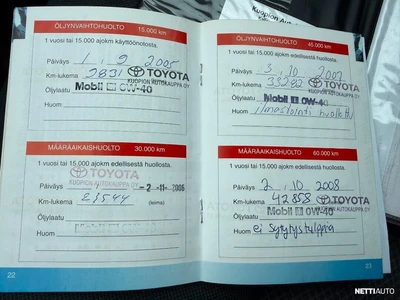 Kuopion
ÖLJYNVAIHTOHUOLTO 15.000 km
1 vuosi tai 15.000 ajokm käyttöönotosta.
Päiväys 1. 9 2005
Km-lukema 9831 TOYOTA
KUOPION AUTOKAUPPA OY
Öljylaatu Mobil 1 0W-40
Huom
MÄÄRÄAIKAISHUOLTO 30.000 km
1 vuosi tai 15.000 ajokm edellisestä huollosta.
TOYOTA
KUOPION AUTOKAUPPA OY
Päiväys -2 -11- 2006
Km-lukema 23544 (leima)
Öljylaatu
Huom
22
ÖLJYNVAIHTOHUOLTO 45.000 km
1 vuosi tai 15.000 ajokm edellisestä huollosta.
Päiväys 3. 10 2007
Km-lukema 33282 TOYOTA
KUOPION AUTOKAUPPA OY
Öljylaatu Mobil 1 0W-40
Huom ilmastointi huollettu
MÄÄRÄAIKAISHUOLTO 60.000 km
1 vuosi tai 15.000 ajokm edellisestä huollosta.
Päiväys 2. 10 2008
Km-lukema 42858 TOYOTA
KUOPION AUTOKAUPPA OY
Öljylaatu Mobil 1 0W-40
Huom ei sytytystulppia
23
NETTIAUTO